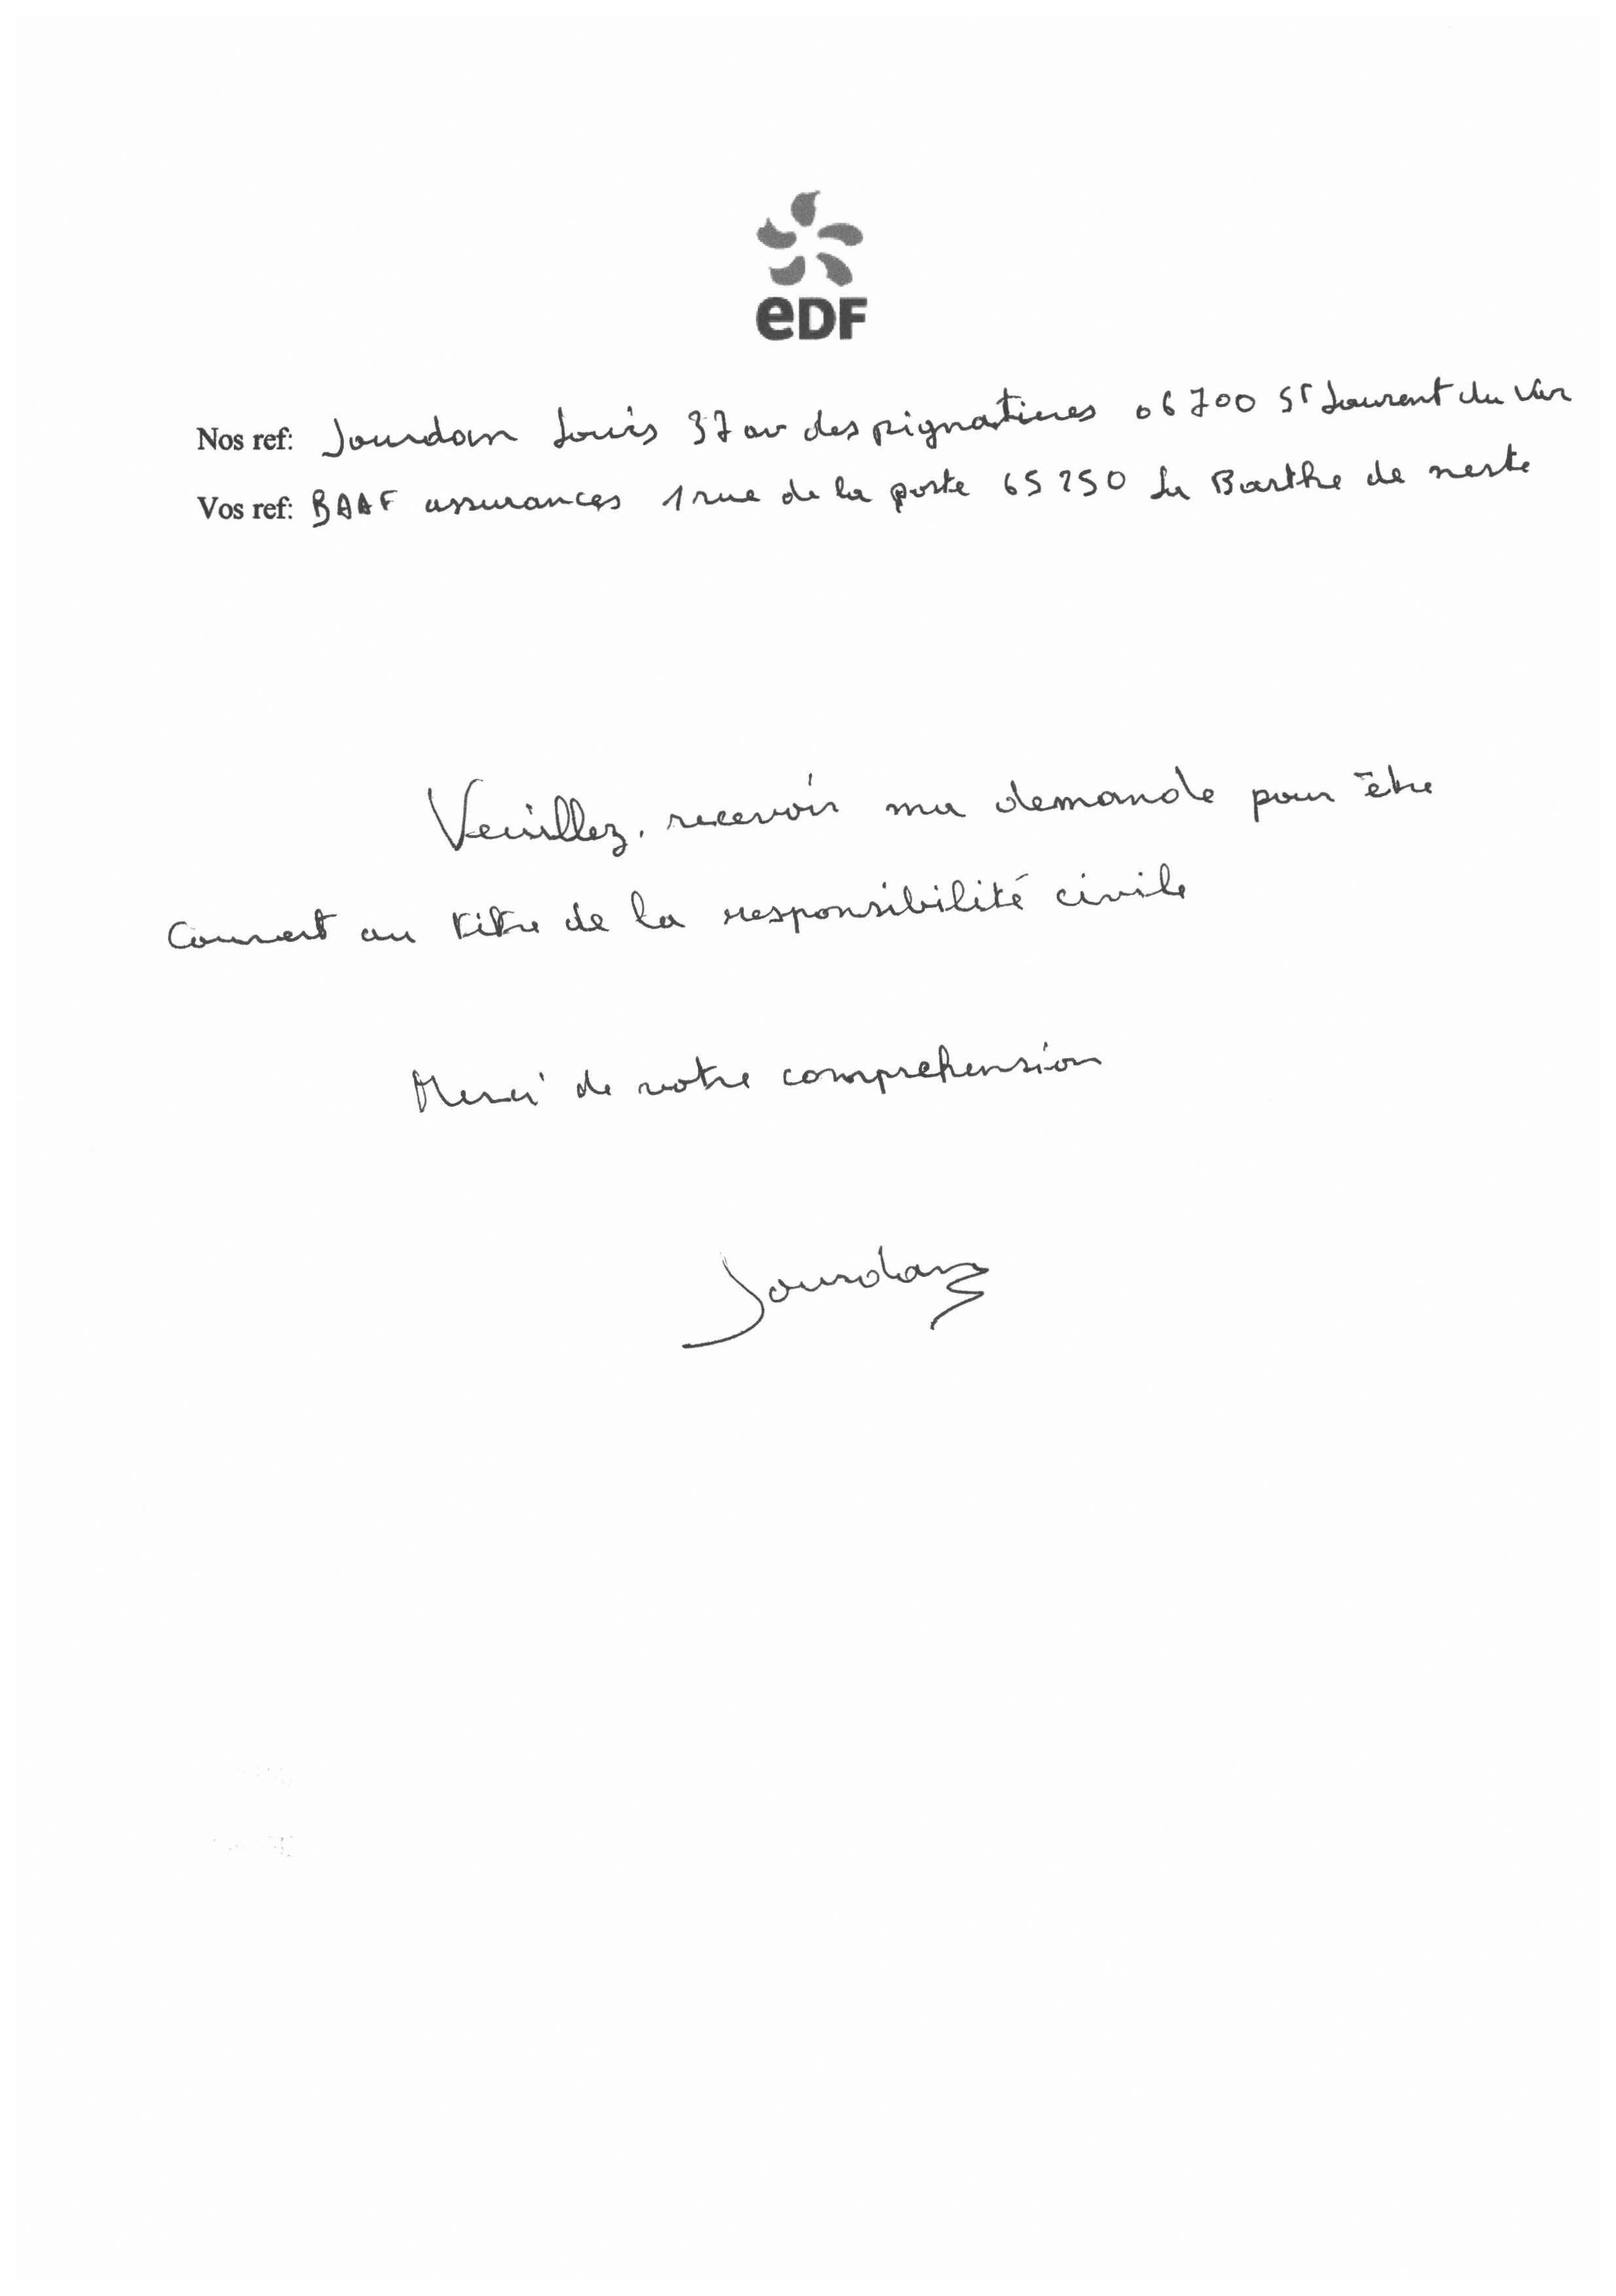 eDF
Nos ref: Jourdan Louis 37 av des pignatieres 06700 St Laurent du Var
Vos ref: BAAF assurances 1 rue de la poste 65250 La Barthe de neste
Veuillez, recevoir ma demande pour être
Couvert au titre de la responsibilité civile
Merci de votre comprehension
Jourdan